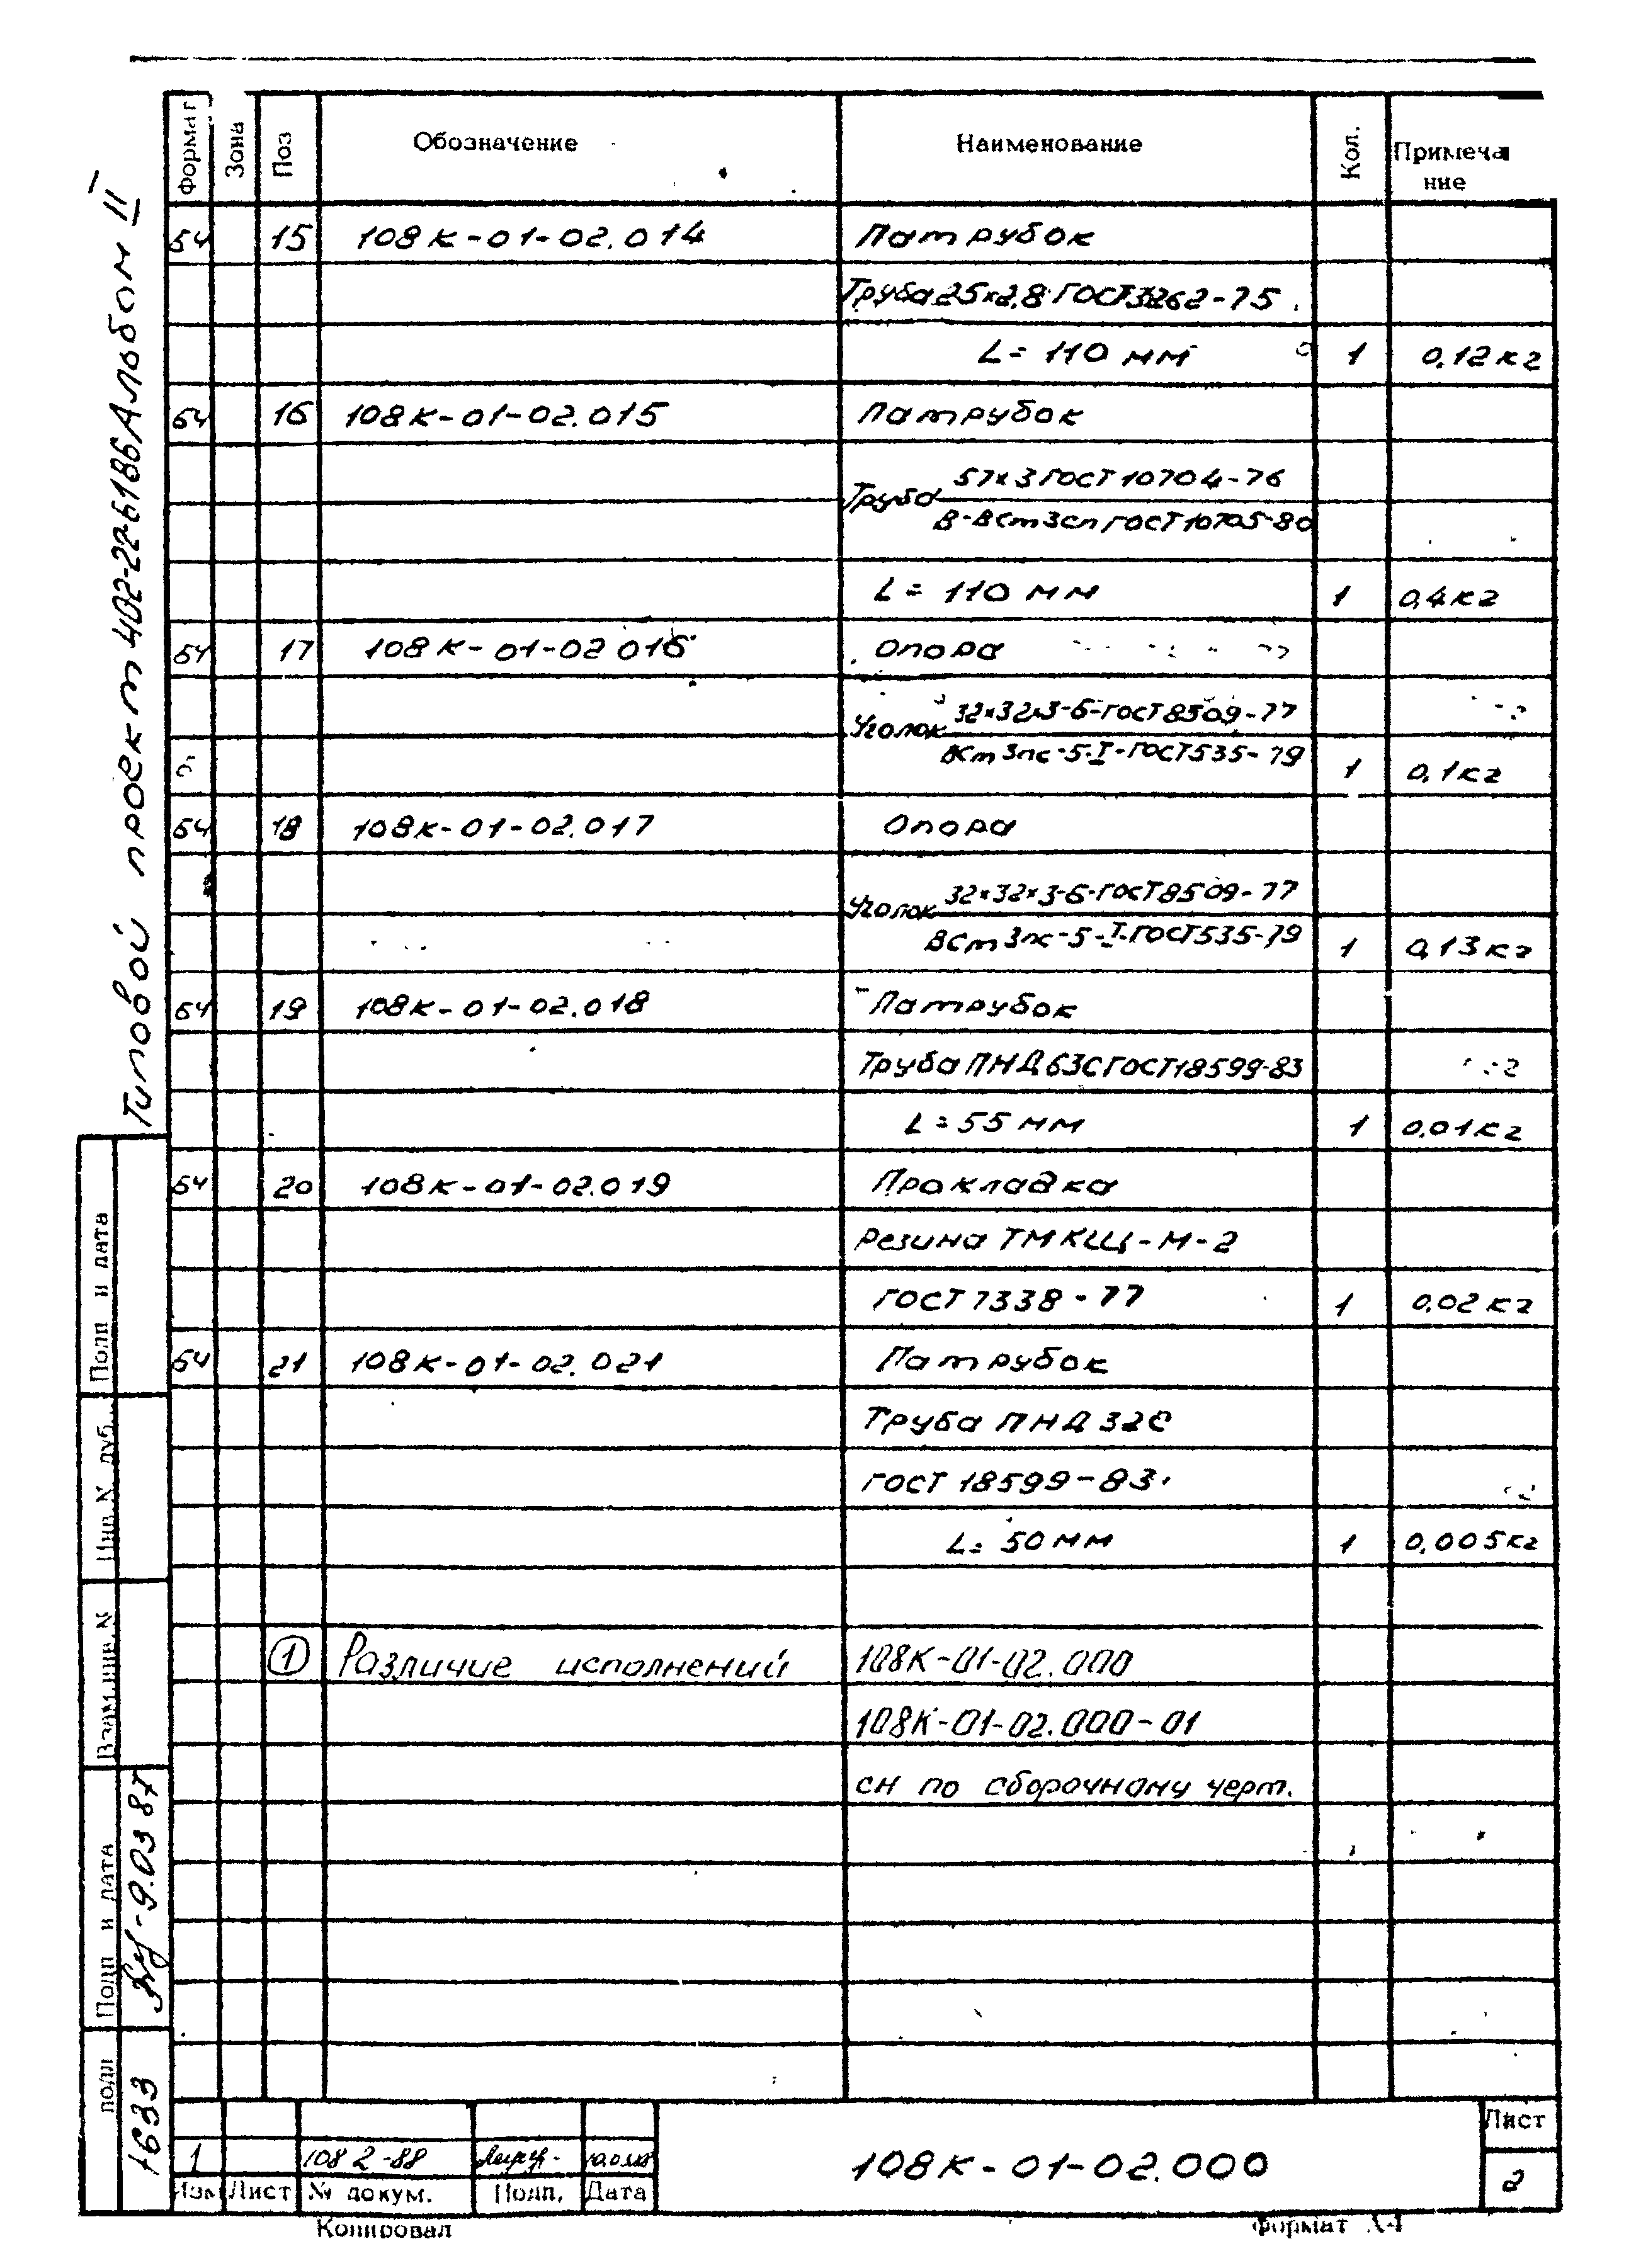 Формат Зона Поз Обозначение Наименование Кол. Примеча
ние
БЧ 15 108К-01-02.014 Патрубок
Труба 25х2,8 ГОСТ 3262-75
L= 110 мм 1 0,12кг
БЧ 16 108К-01-02.015 Патрубок
Труба 57х3 ГОСТ 10704-76
В-ВСт3сп ГОСТ 10705-80
L= 110 мм 1 0,4кг
БЧ 17 108К-01-02 016 Опора
Уголок 32х32х3-Б-ГОСТ 8509-77
ВСт3пс-5-I-ГОСТ 535-79 1 0,1кг
БЧ 18 108К-01-02.017 Опора
Уголок 32х32х3-Б-ГОСТ 8509-77
ВСт3пс-5-I-ГОСТ 535-79 1 0,13кг
БЧ 19 108К-01-02.018 Патрубок
Труба ПНД 63С ГОСТ 18599-83
L= 55 мм 1 0,01кг
БЧ 20 108К-01-02.019 Прокладка
Резина ТМКЩ-М-2
ГОСТ 7338-77 1 0,02кг
БЧ 21 108К-01-02.021 Патрубок
Труба ПНД 32С
ГОСТ 18599-83.
L= 50 мм 1 0,005кг
1 Различие исполнений 108К-01-02.000
108К-01-02.000-01
сн по сборочному черт.
Типовой проект 402-22-6186 Альбом II
Подп и дата
Инв.№ дуб.
Взам.инв.№
Подп и дата 9.03 87
подл 1633
1 1082-88
Изм Лист № докум. Подп. Дата
108К-01-02.000
Лист
2
Копировал Формат А4